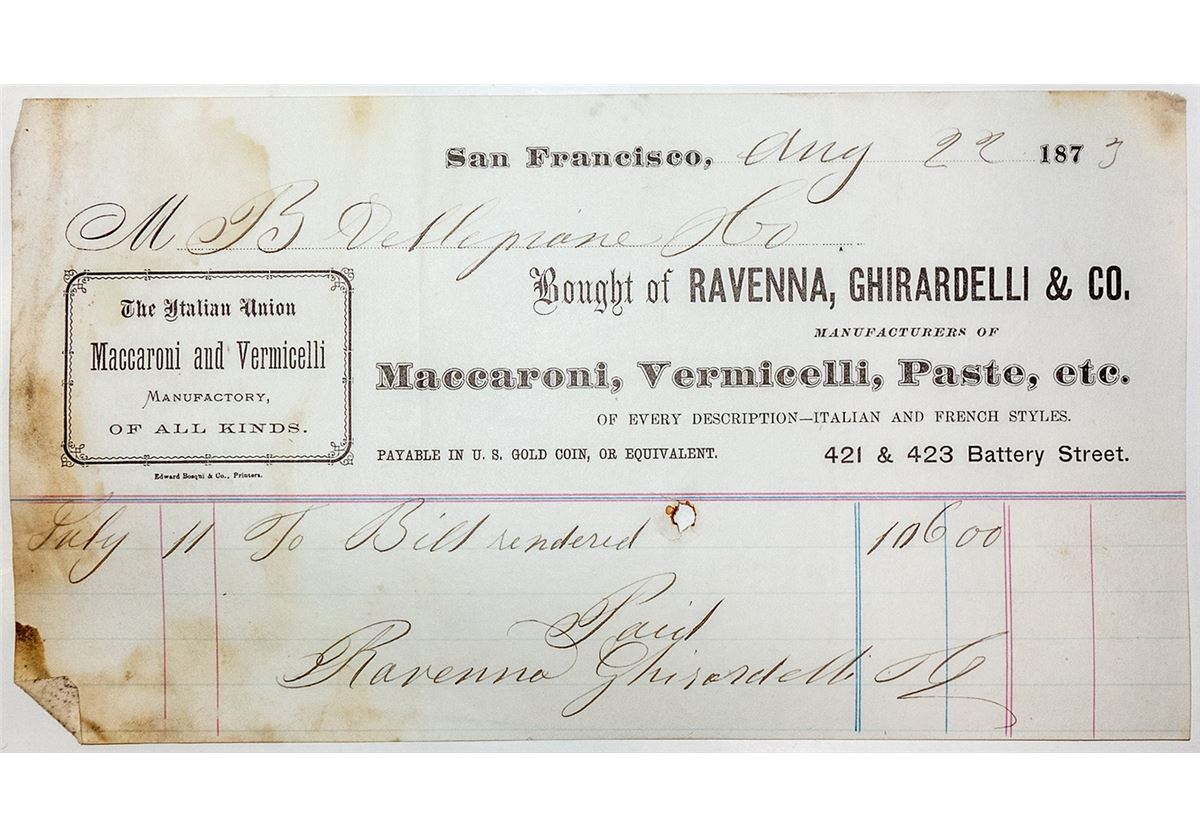 San Francisco, Aug 22 1873
M B Dellepiane & Co
The Italian Union
Maccaroni and Vermicelli
Manufactory,
OF ALL KINDS.
Edward Bosqui & Co., Printers.
Bought of RAVENNA, GHIRARDELLI & CO.
MANUFACTURERS OF
Maccaroni, Vermicelli, Paste, etc.
OF EVERY DESCRIPTION—ITALIAN AND FRENCH STYLES.
PAYABLE IN U. S. GOLD COIN, OR EQUIVALENT. 421 & 423 Battery Street.
July 11 To Bill rendered 106 00
Paid
Ravenna Ghirardelli & Co